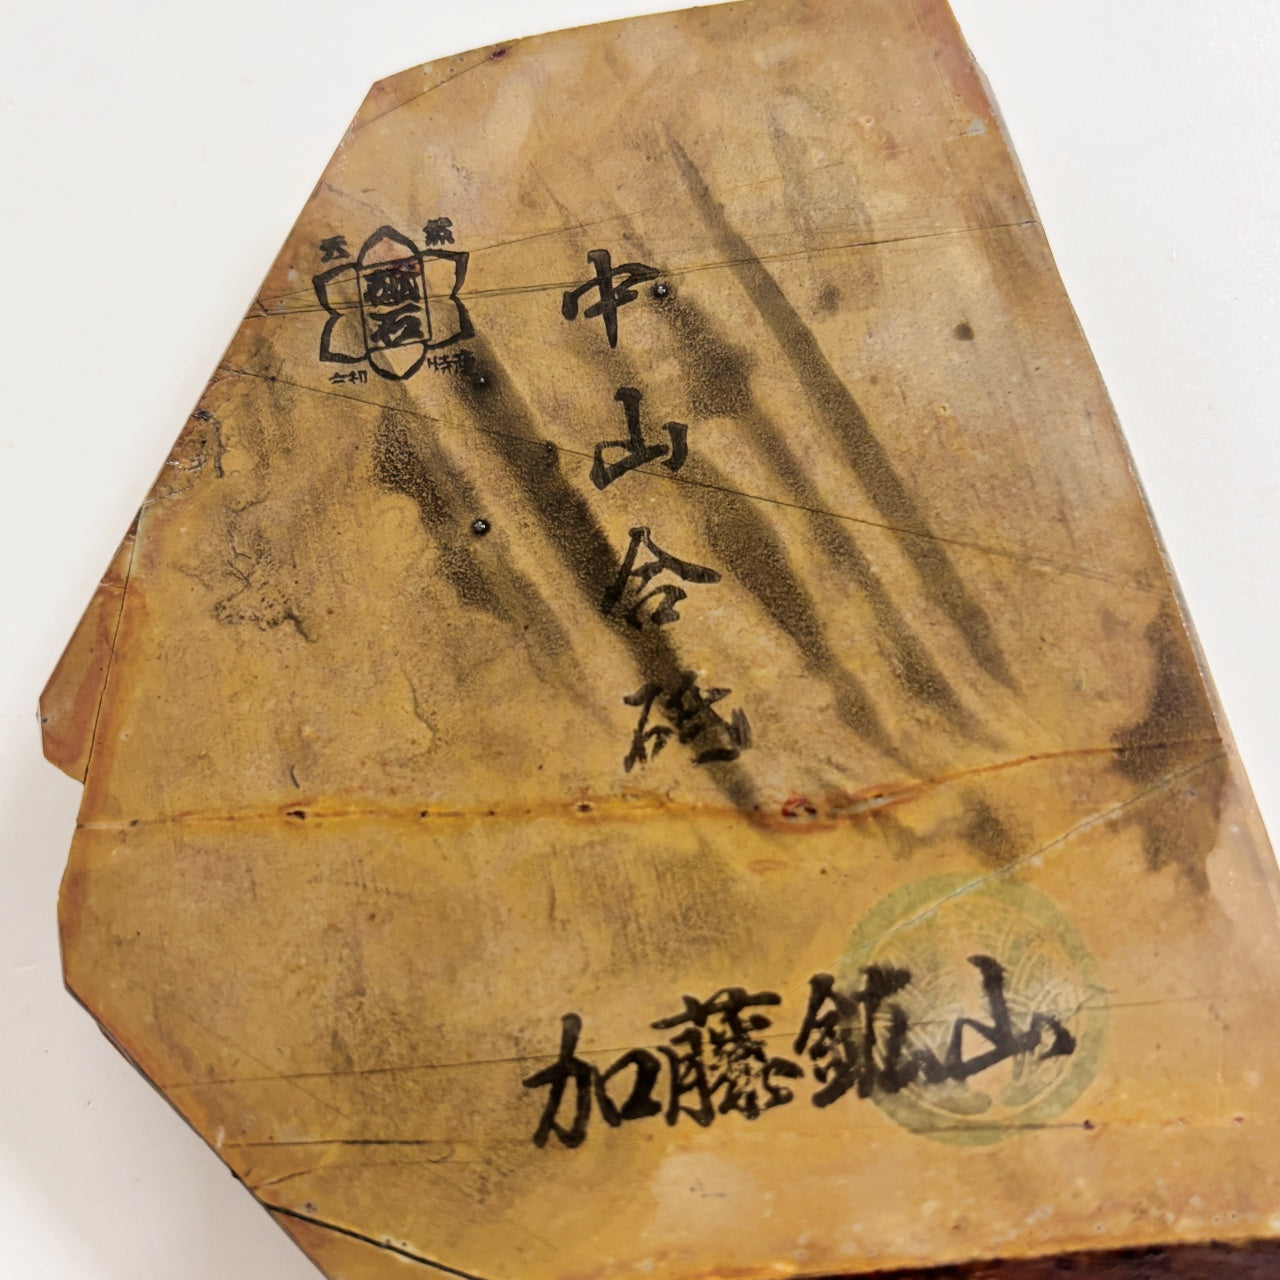 天然
砥石
正初
特産
中山合砥
加藤鉱山